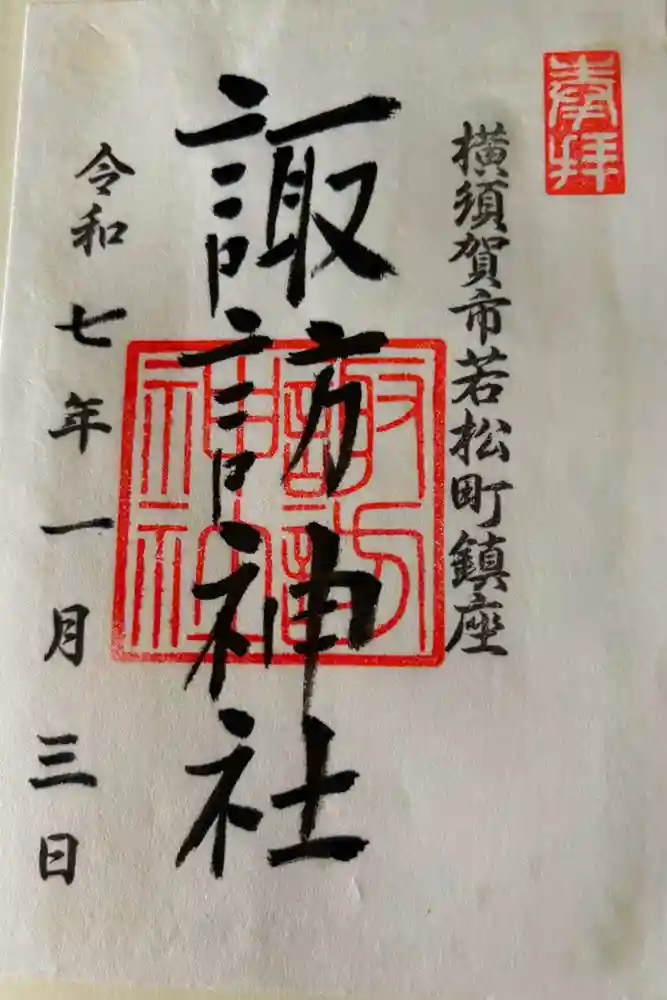 奉拝
横須賀市若松町鎮座
諏訪神社
諏訪
神社
令和七年一月三日